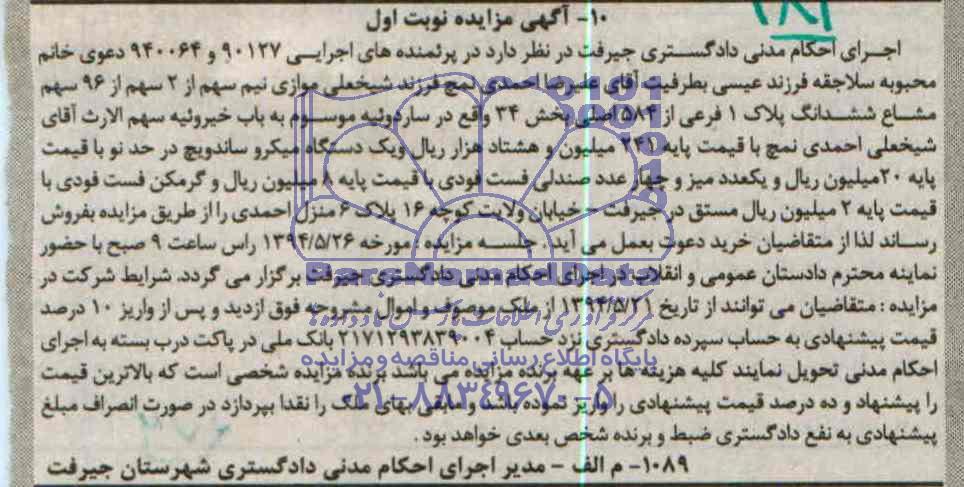 ۱۸۲
۱۰- آگهی مزایده نوبت اول
اجرای احکام مدنی دادگستری جیرفت در نظر دارد در پرئمنده های اجرایی ۹۰۱۲۷ و ۹۴۰۰۶۴ دعوی خانم
محبوبه سلاجقه فرزند عیسی بطرفیت آقای علیرضا احمدی نمچ فرزند شیخعلی موازی نیم سهم از ۲ سهم از ۹۶ سهم
مشاع ششدانگ پلاک ۱ فرعی از ۵۸۴ اصلی بخش ۳۴ واقع در ساردوئیه موسوم به باب خیروئیه سهم الارث آقای
شیخعلی احمدی نمچ با قیمت پایه ۲۴۱ میلیون و هشتاد هزار ریال ویک دستگاه میکرو ساندویچ در حد نو با قیمت
پایه ۲۰میلیون ریال و یکعدد میز و چهار عدد صندلی فست فودی با قیمت پایه ۸ میلیون ریال و گرمکن فست فودی با
قیمت پایه ۲ میلیون ریال مستق در جیرفت - خیابان ولایت کوچه ۱۶ پلاک ۶ منزل احمدی را از طریق مزایده بفروش
رساند لذا از متقاضیان خرید دعوت بعمل می آید . جلسه مزایده : مورخه ۱۳۹۴/۵/۲۶ راس ساعت ۹ صبح با حضور
نماینه محترم دادستان عمومی و انقلاب در اجرای احکام مدنی دادگستری جیرفت برگزار می گردد. شرایط شرکت در
مزایده : متقاضیان می توانند از تاریخ ۱۳۹۴/۵/۲۱ از ملک موصوف و اموال مشروحه فوق ازدید و پس از واریز ۱۰ درصد
قیمت پیشنهادی به حساب سپرده دادگستری نزد حساب ۲۱۷۱۲۹۳۸۳۹۰۰۴ بانک ملی در پاکت درب بسته به اجرای
احکام مدنی تحویل نمایند کلیه هزینه ها بر عهه برنده مزایده می باشد برنده مزایده شخصی است که بالاترین قیمت
را پیشنهاد و ده درصد قیمت پیشنهادی را واریز نموده باشد و مابقی بهای ملک را نقدا بپردازد در صورت انصراف مبلغ
پیشنهادی به نفع دادگستری ضبط و برنده شخص بعدی خواهد بود .
۱۰۸۹- م الف - مدیر اجرای احکام مدنی دادگستری شهرستان جیرفت
ParsNamadData
مرکز فرآوری اطلاعات پارس نماد داده ها
پایگاه اطلاع رسانی مناقصه و مزایده
۰۲۱-۸۸۳۴۹۶۷۰-۵